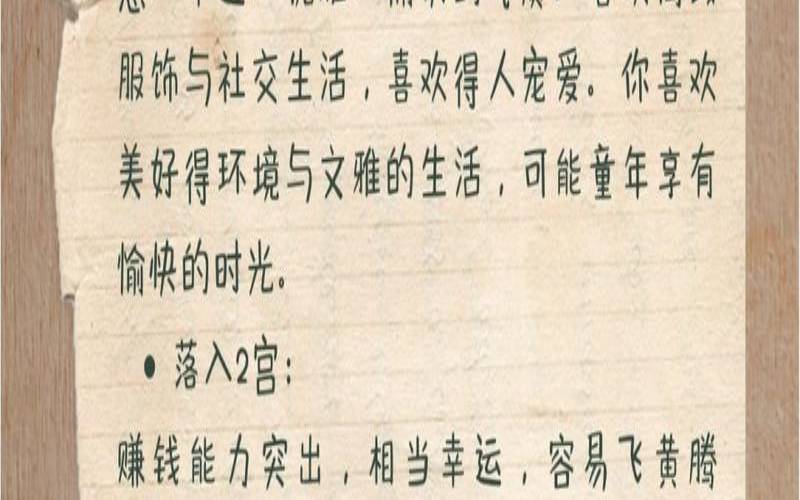 服饰与社交生活，喜欢得人宠爱。你喜欢
美好得环境与文雅的生活，可能童年享有
愉快的时光。
• 落入2宫：
赚钱能力突出，相当幸运，容易飞黄腾